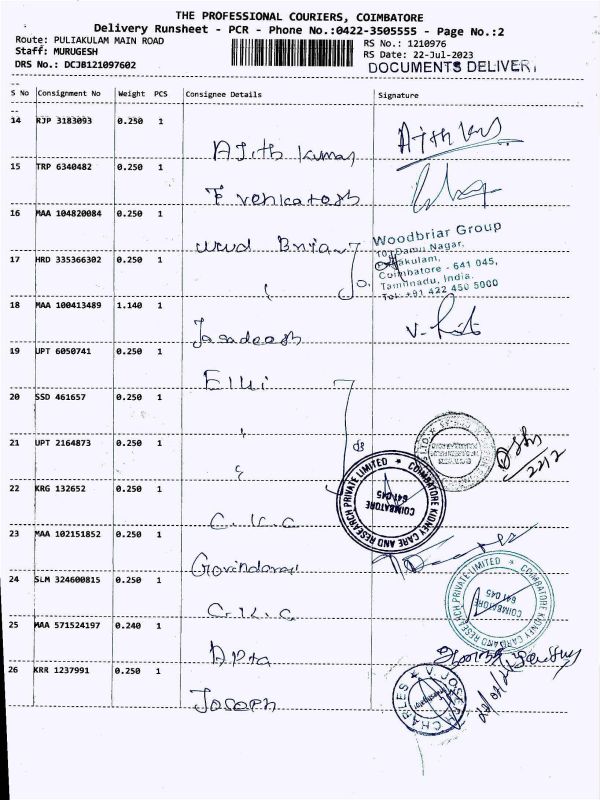 THE PROFESSIONAL COURIERS, COIMBATORE
Delivery Runsheet - PCR - Phone No.:0422-3505555 - Page No.:2
Route: PULIAKULAM MAIN ROAD RS No.: 1210976
Staff: MURUGESH RS Date: 22-Jul-2023
DRS No.: DCJB121097602 DOCUMENTS DELIVER
S No Consignment No Weight PCS Consignee Details Signature
14 RJP 3183093 0.250 1
Ajith Kumar Ajith
15 TRP 6340482 0.250 1
F venkatesh
16 MAA 104820084 0.250 1
Wood Briar Woodbriar Group
Damu Nagar,
17 HRD 335366302 0.250 1
Coimbatore - 641 045,
Tamilnadu, India.
Tel: +91 422 450 5000
18 MAA 100413489 1.140 1
Jagadeesh V.
19 UPT 6050741 0.250 1
Elli
20 SSD 461657 0.250 1
21 UPT 2164873 0.250 1
22 KRG 132652 0.250 1
COIMBATORE KIDNEY CARE AND RESEARCH PRIVATE LIMITED ★
COIMBATORE
641 045
C.K.C
23 MAA 102151852 0.250 1
Govindaraj
24 SLM 324600815 0.250 1
COIMBATORE KIDNEY CARE AND RESEARCH PRIVATE LIMITED ★
COIMBATORE
641 045
C.K.C
25 MAA 571524197 0.240 1
Apta
26 KRR 1237991 0.250 1
Joseph
CHARLES ★ V. JOSEPH